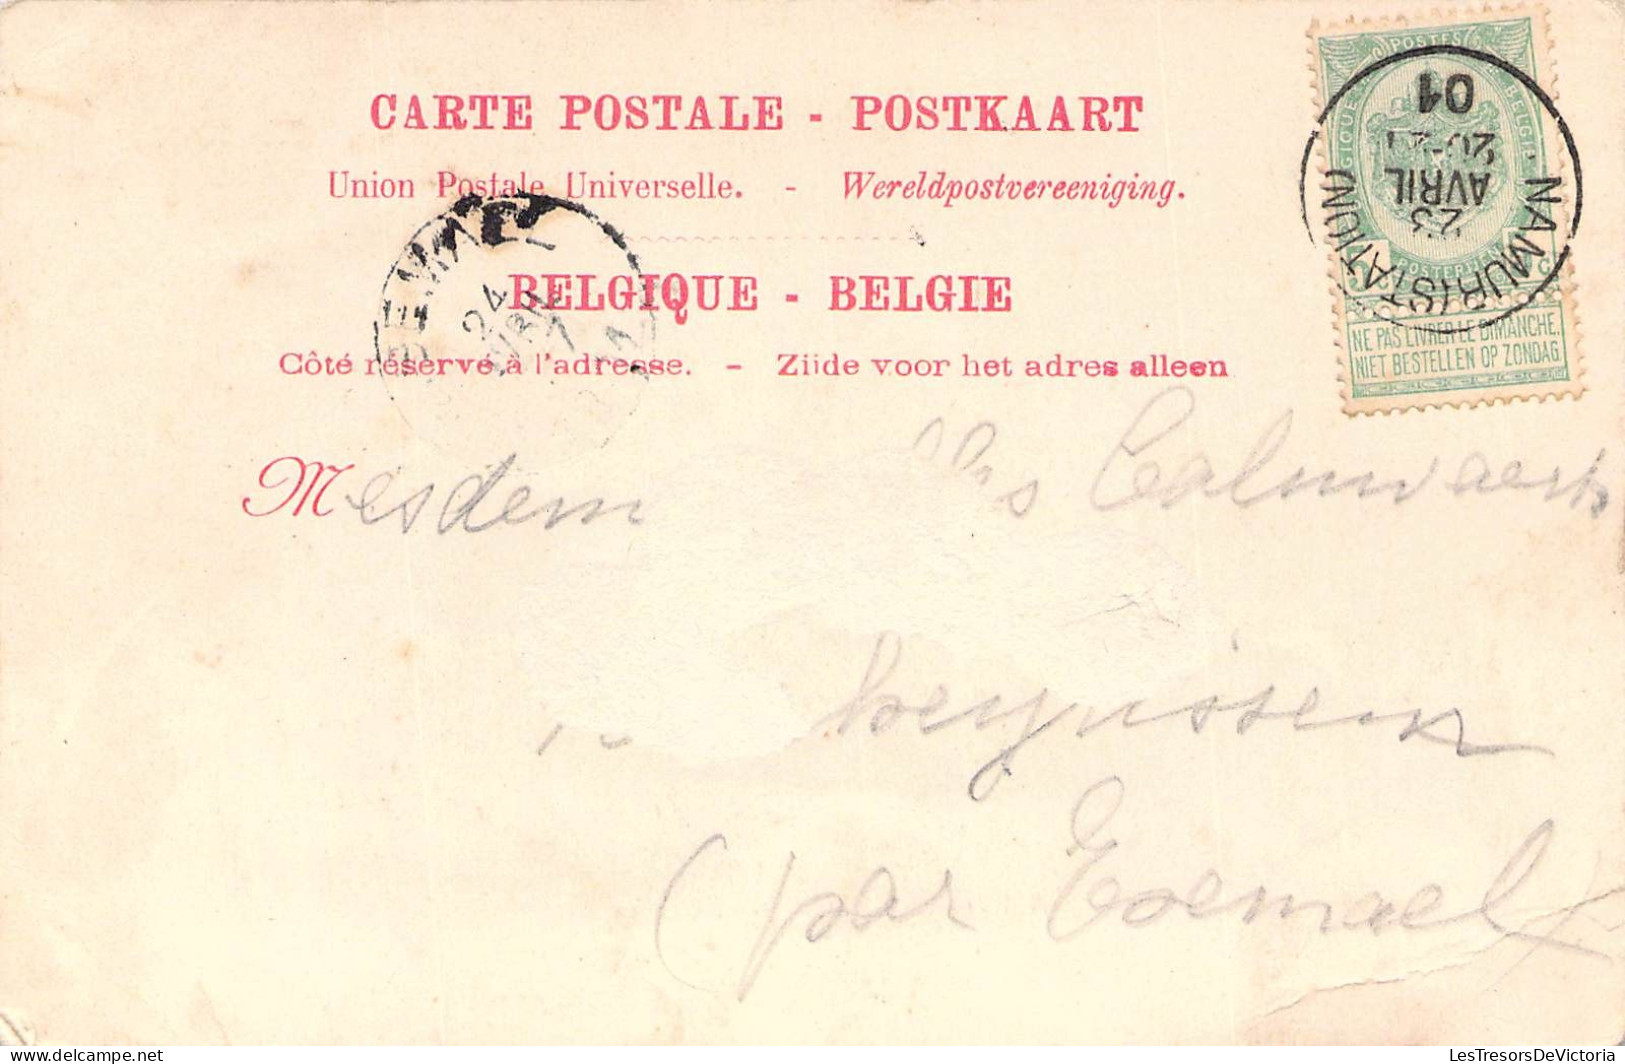 CARTE POSTALE - POSTKAART
Union Postale Universelle. - Wereldpostvereeniging.
BELGIQUE - BELGIE
Côté réservé à l'adresse. - Zijde voor het adres alleen
POSTES
BELGIQUE BELGIE
POSTERIJEN
NE PAS LIVRER LE DIMANCHE.
NIET BESTELLEN OP ZONDAG.
NAMUR (STATION)
23
AVRIL
20-21
01
24
AVRIL
Mesdem lles
par
LesTresorsDeVictoria.com